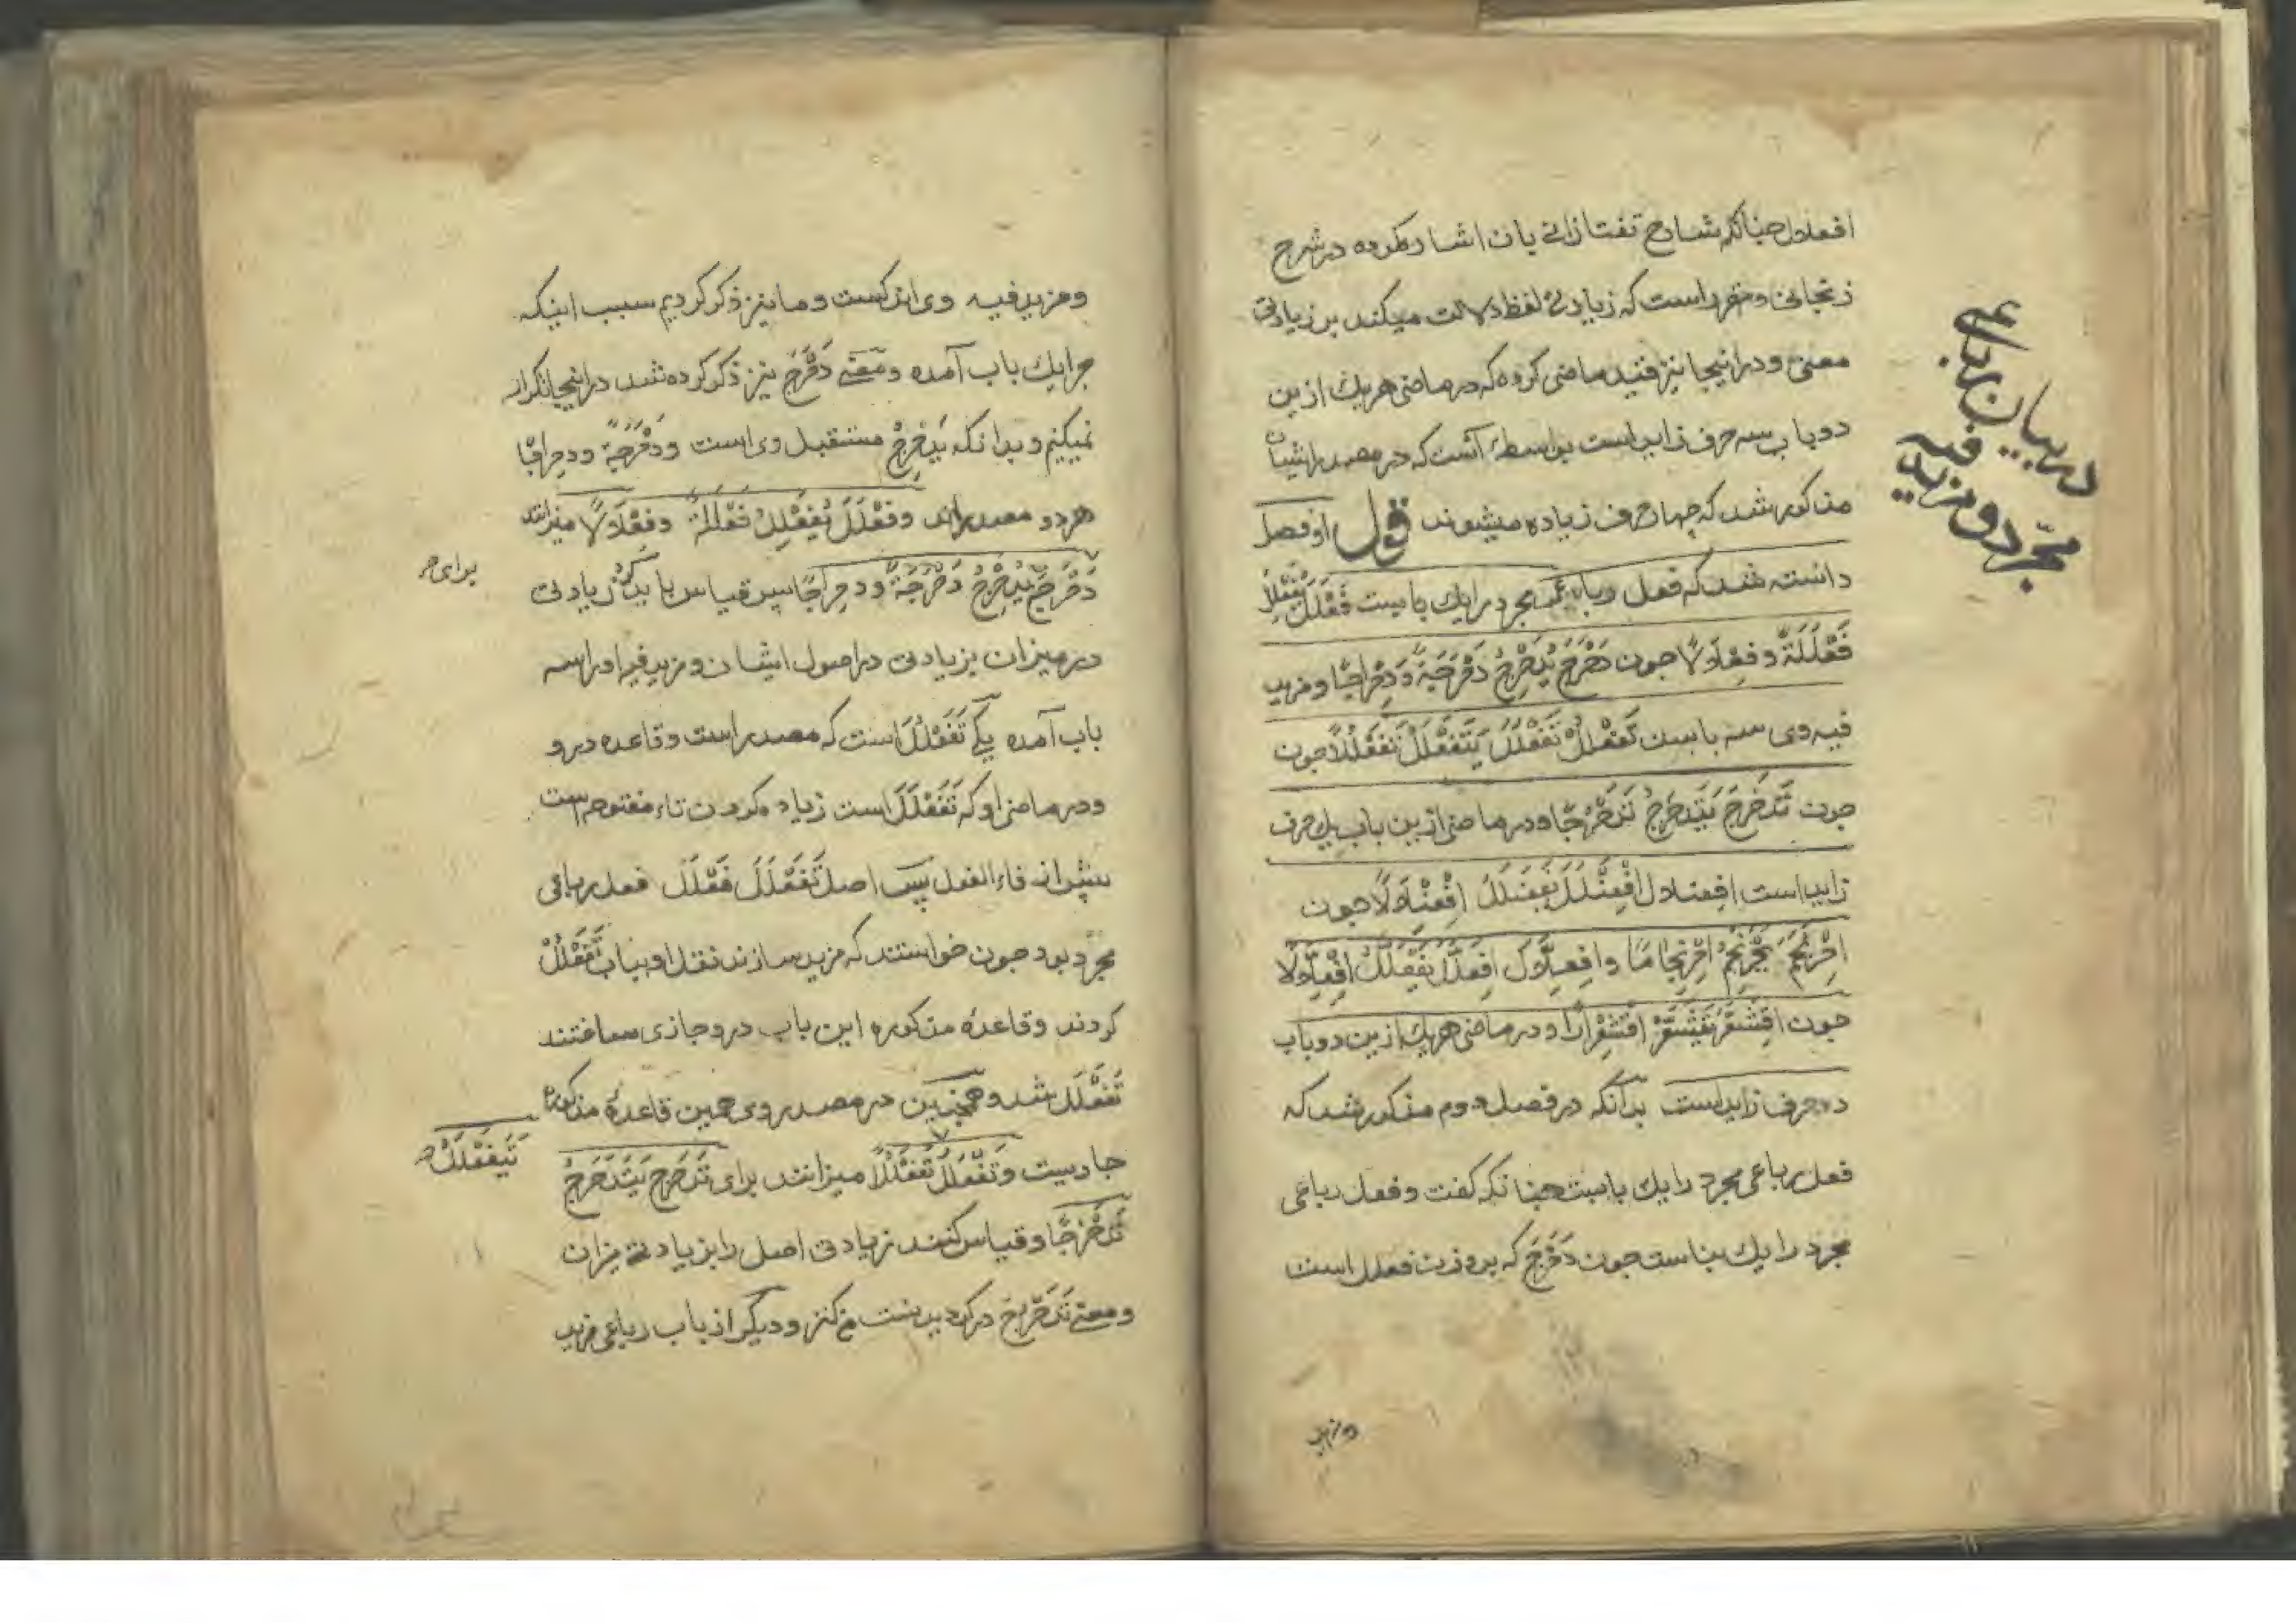 افعلال چنانکه شارح تفتازانی بان اشاره کرده در شرح
زنجانی و مقرر است که زیادتی لفظ دلالت میکند بر زیادتی
معنی و در اینجا نیز قید ماضی کرده که در ماضی هر یک ازین
دو باب سه حرف زاید است بواسطه آنست که در مصدر ایشان
مذکور شد که چهار حرف زیاده میشوند قول او فصل
دانسته شد که فعل رباعی مجرد را یک بابست فَعْلَلَ یُفَعْلِلُ
فَعْلَلَةً و فِعْلَالًا جون دَحْرَجَ یُدَحْرِجُ دَحْرَجَةً وَدِحْرَاجًا و مزید
فیه وی سه بابست تَفَعْلُلْ تَفَعْلَلَ یَتَفَعْلَلُ تَفَعْلُلًا جون
جون تَدَحْرَجَ یَتَدَحْرَجُ تَدَحْرُجًا و در ماضی ازین باب یک حرف
زاید است اِفْعِنْلال اِفْعَنْلَلَ یَفْعَنْلِلُ اِفْعِنْلَالًا جون
اِحْرَنْجَمَ یَحْرَنْجِمُ اِحْرِنْجَامًا و اِفْعِلَّال اِفْعَلَلَّ یَفْعَلِلُّ اِفْعِلَّالًا
جون اِقْشَعَرَّ یَقْشَعِرُّ اِقْشِعْرَارًا و در ماضی هر یک ازین دو باب
دو حرف زاید است بدانکه در فصل دوم مذکور شد که
فعل رباعی مجرد را یک بابست چنانکه کفت و فعل رباعی
مجرد را یک بناست جون دَحْرَجَ که بر وزن فعلل است
ومزید
در بیان رباعی
مجرد و مزید فیه
ومزید فیه وی اندکست وما نیز ذکر کردیم سبب اینکه
جرا یک باب آمده و معنی دَحْرَجَ نیز ذکر کرده شد در اینجا تکرار
نمیکنیم و بدانکه یُدَحْرِجُ مستقبل وی است و دَحْرَجَةً و دحراجًا
هر دو مصدراند و فَعْلَلَ یُفَعْلِلُ فَعْلَلَةً وفِعْلَالًا میزانند
دَحْرَجَ یُدَحْرِجُ دَحْرَجَةً و دحراجًا پس قیاس باید کرد زیادتی
برای
در میزان بزیادتی در اصول ایشان و مزید فیه او را سه
باب آمده یکی تَفَعْلُلْ است که مصدر است و قاعده درو
و در ماضی او که تَفَعْلَلَ است زیاده کردن تاء مفتوحه است
پیش از فاء الفعل پس اصل تَفَعْلَلَ فَعْلَلَ فعل رباعی
مجرد بود جون خواستند که مزید سازند نقل او بباب تَفَعْلُلْ
کردند و قاعدهٔ مذکوره این باب درو جاری ساختند
تَفَعْلَلَ شد و همچنین در مصدر وی همین قاعدهٔ مذکوره
جاریست و تَفَعْلَلَ تَفَعْلُلًا میزانند برای تَدَحْرَجَ یَتَدَحْرَجُ
یَتَفَعْلَلُ
تَدَحْرُجًا و قیاس کنند زیادتی اصل را بزیادتی میزان
و معنی تَدَحْرَجَ در کردیدنست و دیگر از باب رباعی مزید